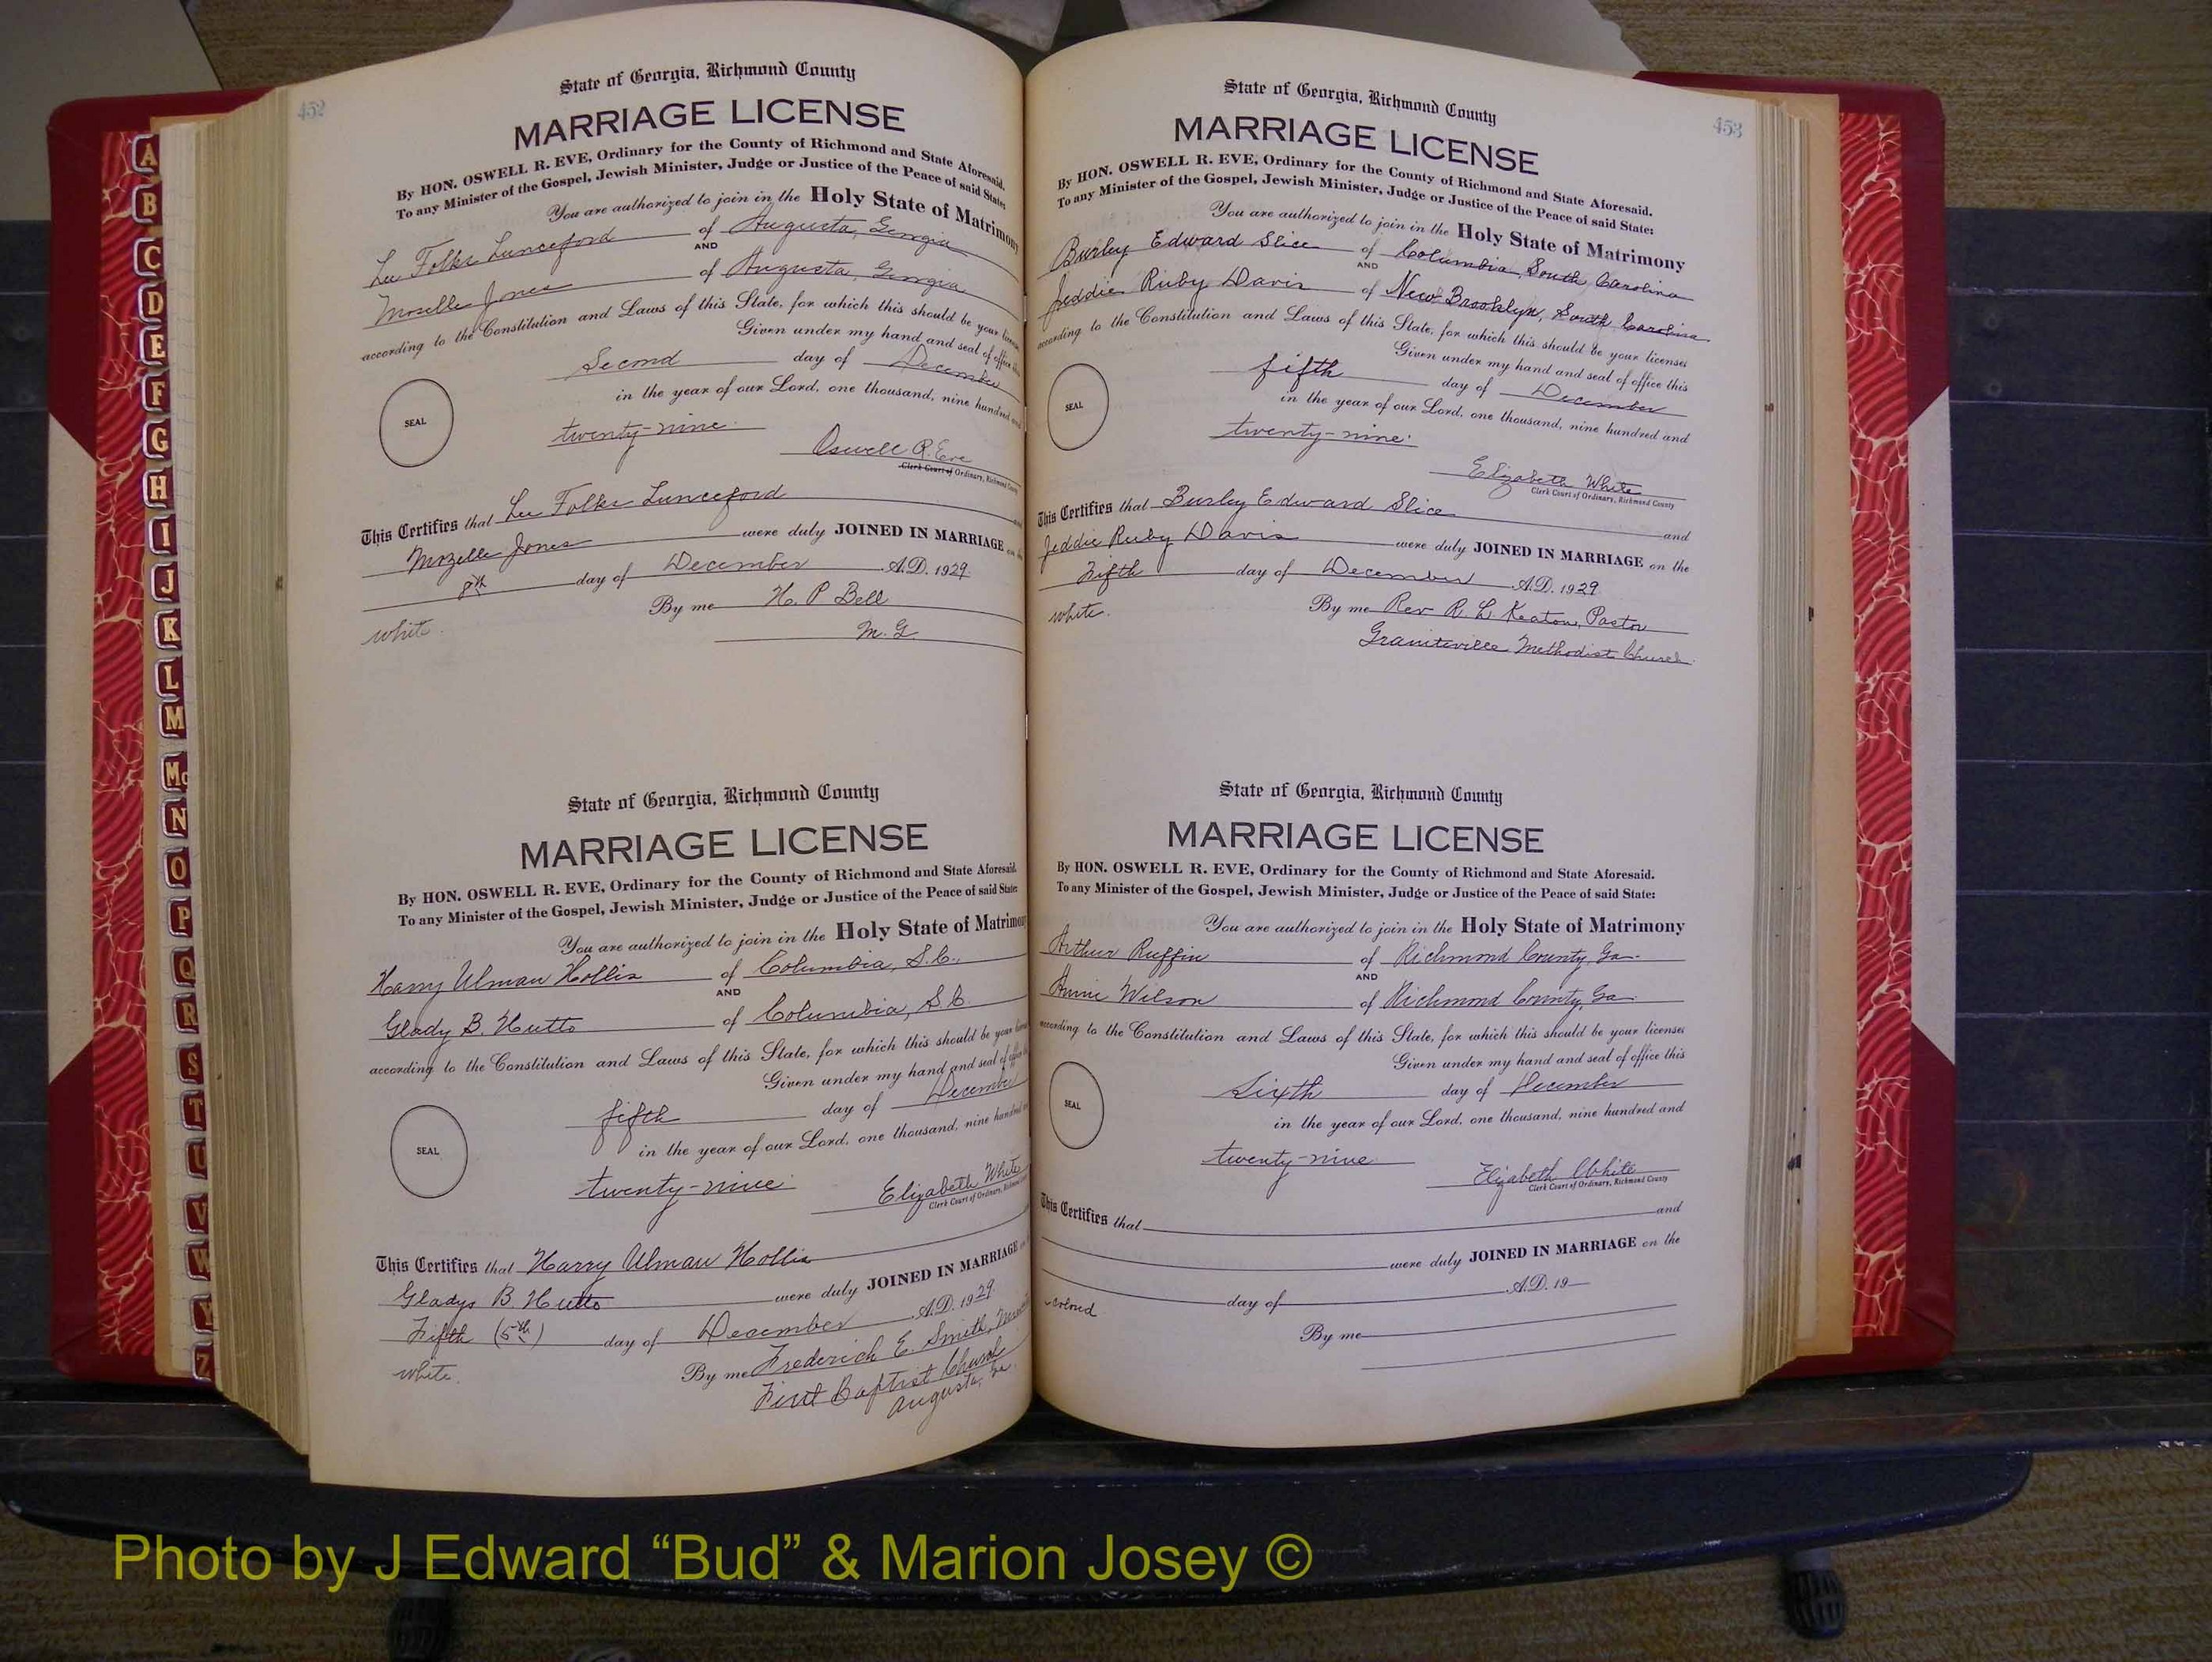 452
State of Georgia, Richmond County
MARRIAGE LICENSE
By HON. OSWELL R. EVE, Ordinary for the County of Richmond and State Aforesaid.
To any Minister of the Gospel, Jewish Minister, Judge or Justice of the Peace of said State:
You are authorized to join in the Holy State of Matrimony
Lee Folks Lunceford of Augusta, Georgia
AND
Mozelle Jones of Augusta, Georgia
according to the Constitution and Laws of this State, for which this should be your
Given under my hand and seal of office
Second day of December
SEAL
in the year of our Lord, one thousand, nine hundred
twenty-nine
Oswell R. Eve
Clerk Court of Ordinary, Richmond County
This Certifies that Lee Folks Lunceford
Mozelle Jones were duly JOINED IN MARRIAGE
8th day of December A.D. 1929
By me H. P Bell
white.
M. G
State of Georgia, Richmond County
MARRIAGE LICENSE
By HON. OSWELL R. EVE, Ordinary for the County of Richmond and State Aforesaid.
To any Minister of the Gospel, Jewish Minister, Judge or Justice of the Peace of said State:
You are authorized to join in the Holy State of Matrimony
Harry Ulman Hollis of Columbia, S.C.,
AND
Glady B. Hutto of Columbia, S.C.
according to the Constitution and Laws of this State, for which this should be your
Given under my hand and seal of
fifth day of December
SEAL
in the year of our Lord, one thousand, nine hundred
twenty-nine
Elizabeth White
Clerk Court of Ordinary, Richmond
This Certifies that Harry Ulman Hollis
Gladys B. Hutto were duly JOINED IN MARRIAGE
Fifth (5th) day of December A.D. 1929.
By me Frederick E. Smith,
white.
First Baptist Church
Augusta, Ga.
453
State of Georgia, Richmond County
MARRIAGE LICENSE
By HON. OSWELL R. EVE, Ordinary for the County of Richmond and State Aforesaid.
To any Minister of the Gospel, Jewish Minister, Judge or Justice of the Peace of said State:
You are authorized to join in the Holy State of Matrimony
Burley Edward Slice of Columbia, South Carolina
AND
Jeddie Ruby Davis of New Brooklyn, South Carolina
according to the Constitution and Laws of this State, for which this should be your licenses
Given under my hand and seal of office this
fifth day of December
SEAL
in the year of our Lord, one thousand, nine hundred and
twenty-nine
Elizabeth White
Clerk Court of Ordinary, Richmond County
This Certifies that Burley Edward Slice and
Jeddie Ruby Davis were duly JOINED IN MARRIAGE on the
Fifth day of December A.D. 1929
By me Rev R. L. Keaton, Pastor
white.
Graniteville Methodist Church.
State of Georgia, Richmond County
MARRIAGE LICENSE
By HON. OSWELL R. EVE, Ordinary for the County of Richmond and State Aforesaid.
To any Minister of the Gospel, Jewish Minister, Judge or Justice of the Peace of said State:
You are authorized to join in the Holy State of Matrimony
Arthur Ruffin of Richmond County, Ga.
AND
Annie Wilson of Richmond County, Ga
according to the Constitution and Laws of this State, for which this should be your licenses
Given under my hand and seal of office this
Sixth day of December
SEAL
in the year of our Lord, one thousand, nine hundred and
twenty-nine
Elizabeth White
Clerk Court of Ordinary, Richmond County
This Certifies that and
were duly JOINED IN MARRIAGE on the
day of A.D. 19
colored
By me
A
B
C
D
E
F
G
H
I
J
K
L
M
Mc
N
O
P
Q
R
S
T
U
V
W
Y
Z
Photo by J Edward “Bud” & Marion Josey ©